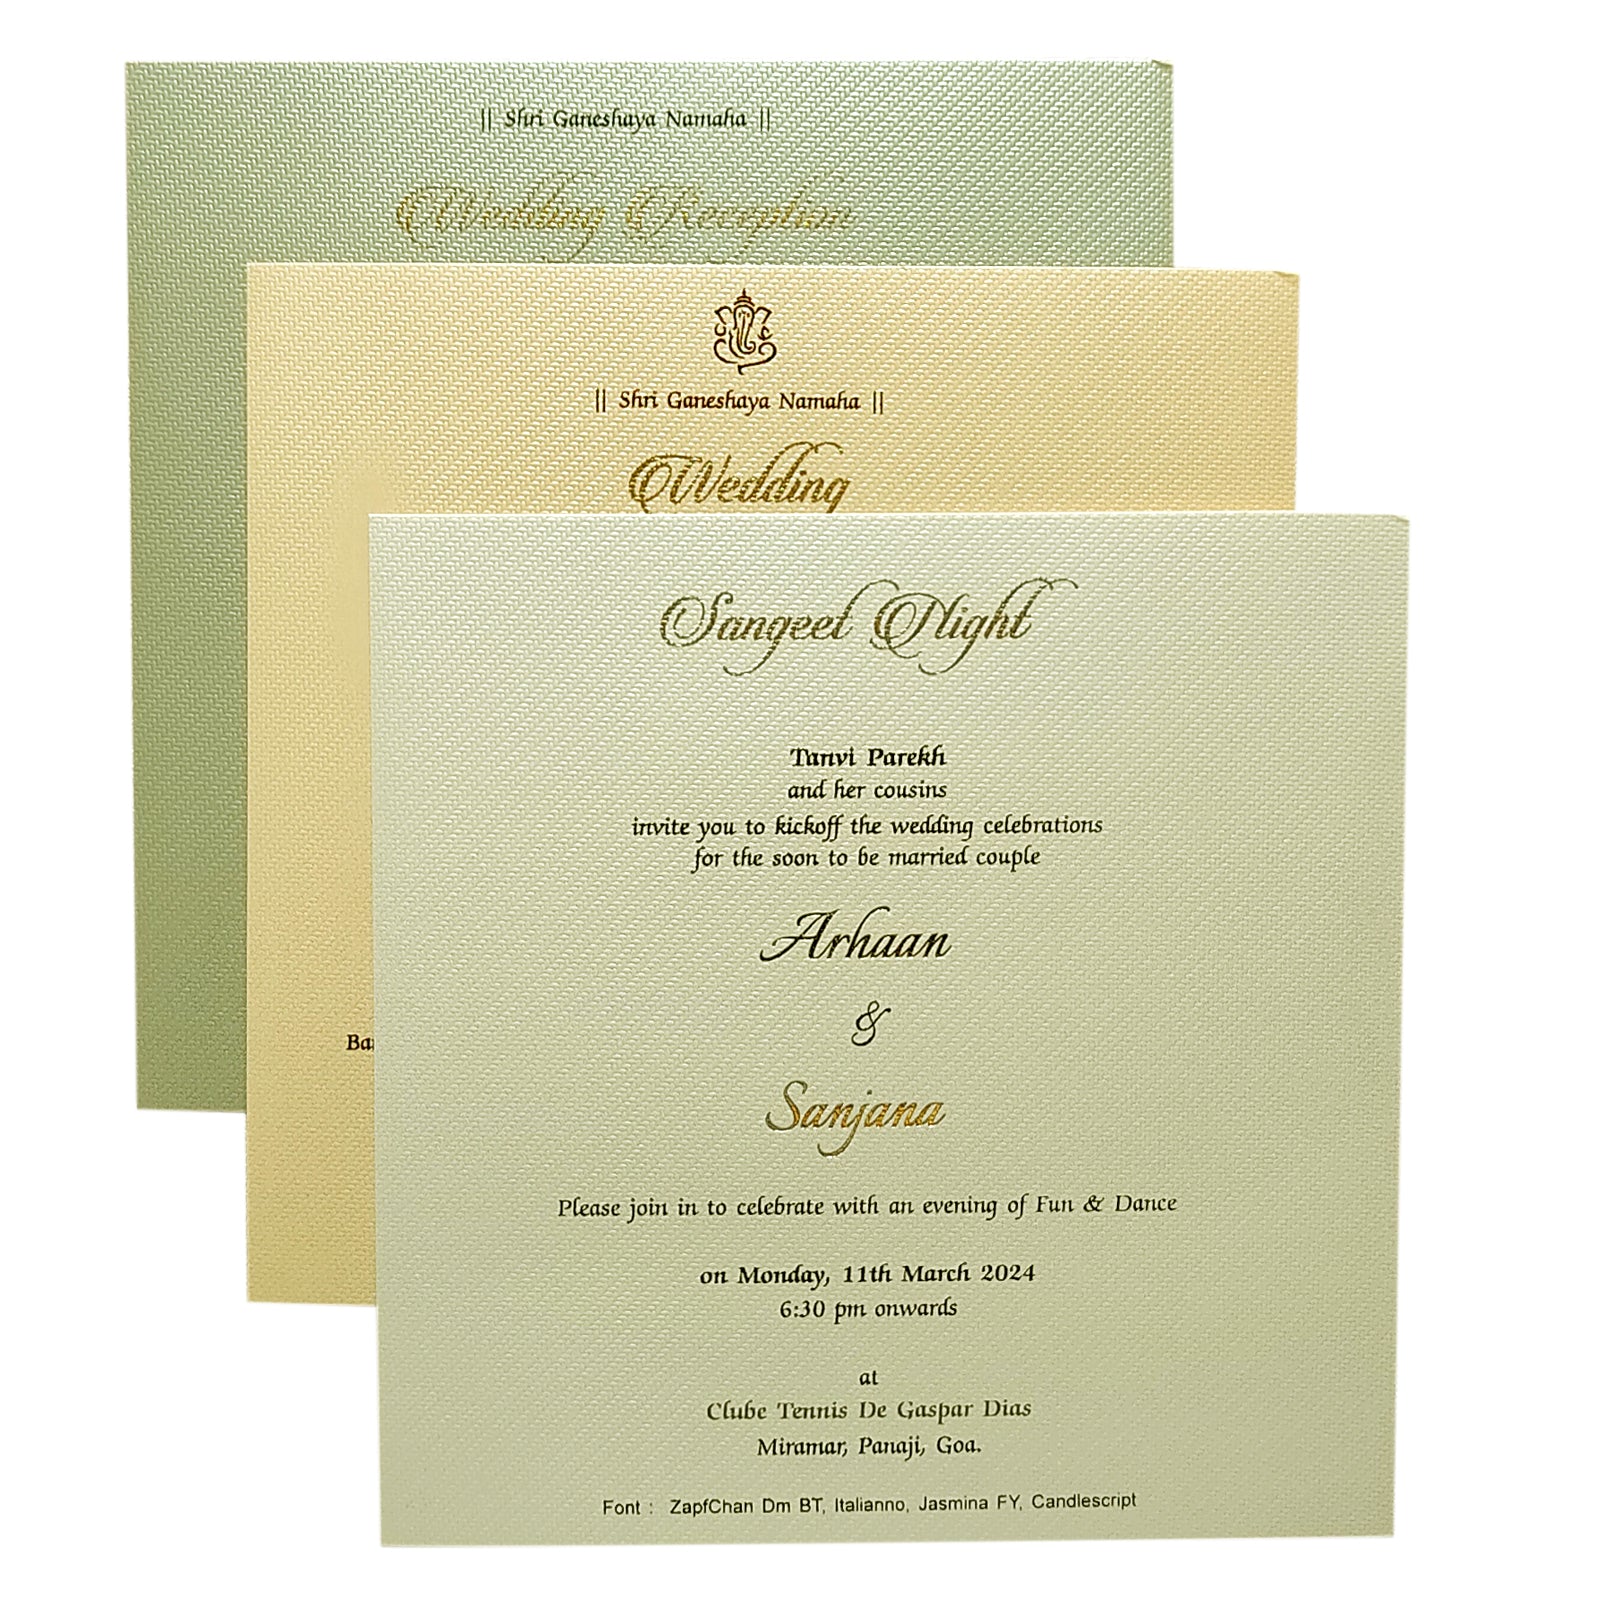 || Shri Ganeshaya Namaha ||
Wedding Reception
|| Shri Ganeshaya Namaha ||
Wedding
Sangeet Night
Tanvi Parekh
and her cousins
invite you to kickoff the wedding celebrations
for the soon to be married couple
Arhaan
&
Sanjana
Please join in to celebrate with an evening of Fun & Dance
on Monday, 11th March 2024
6:30 pm onwards
at
Clube Tennis De Gaspar Dias
Miramar, Panaji, Goa.
Font : ZapfChan Dm BT, Italianno, Jasmina FY, Candlescript